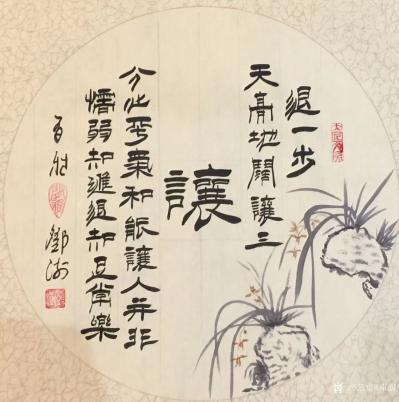 退一步
天高地闊讓三
讓
分心平氣和能讓人并非
懦弱知進退知足常樂